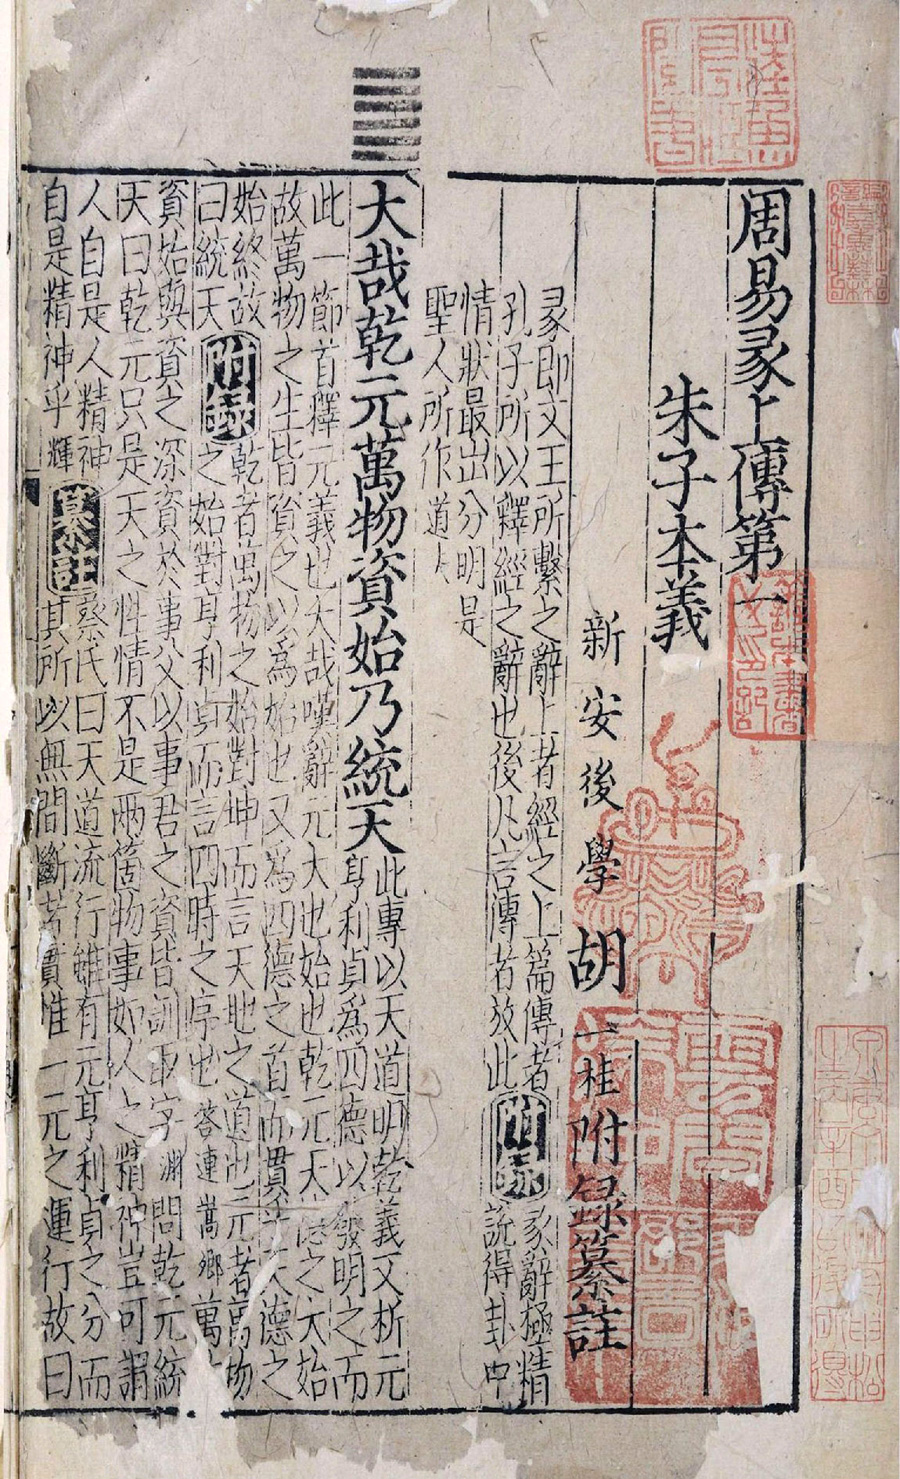 周易彖上傳第一
朱子本義
新安後學胡一桂附錄纂註
彖即文王所繫之辭上者經之上篇傳者附錄彖辭極精
孔子所以釋經之辭也後凡言傳者放此說得卦中
情狀最出分明是
聖人所作道
大哉乾元萬物資始乃統天此專以天道明乾義又析元
亨利貞爲四德以發明之而
此一節首釋元義也大哉嘆辭元大也始也乾元天德之大始
故萬物之生皆資之以爲始也又爲四德之首而貫乎天德之
始終故
曰統天附錄乾者萬物之始對坤而言天地之道也元者萬物
之始對亨利貞而言四時之序也答連嵩鄉萬
資始與資之深資於事父以事君之資皆訓取字淵問乾元統
天曰乾元只是天之性情不是兩箇物事如人之精神豈可謂
人自是人精神
自是精神乎輝纂註蔡氏曰天道流行雖有元亨利貞之分而
其所以無間斷者實惟一元之運行故曰